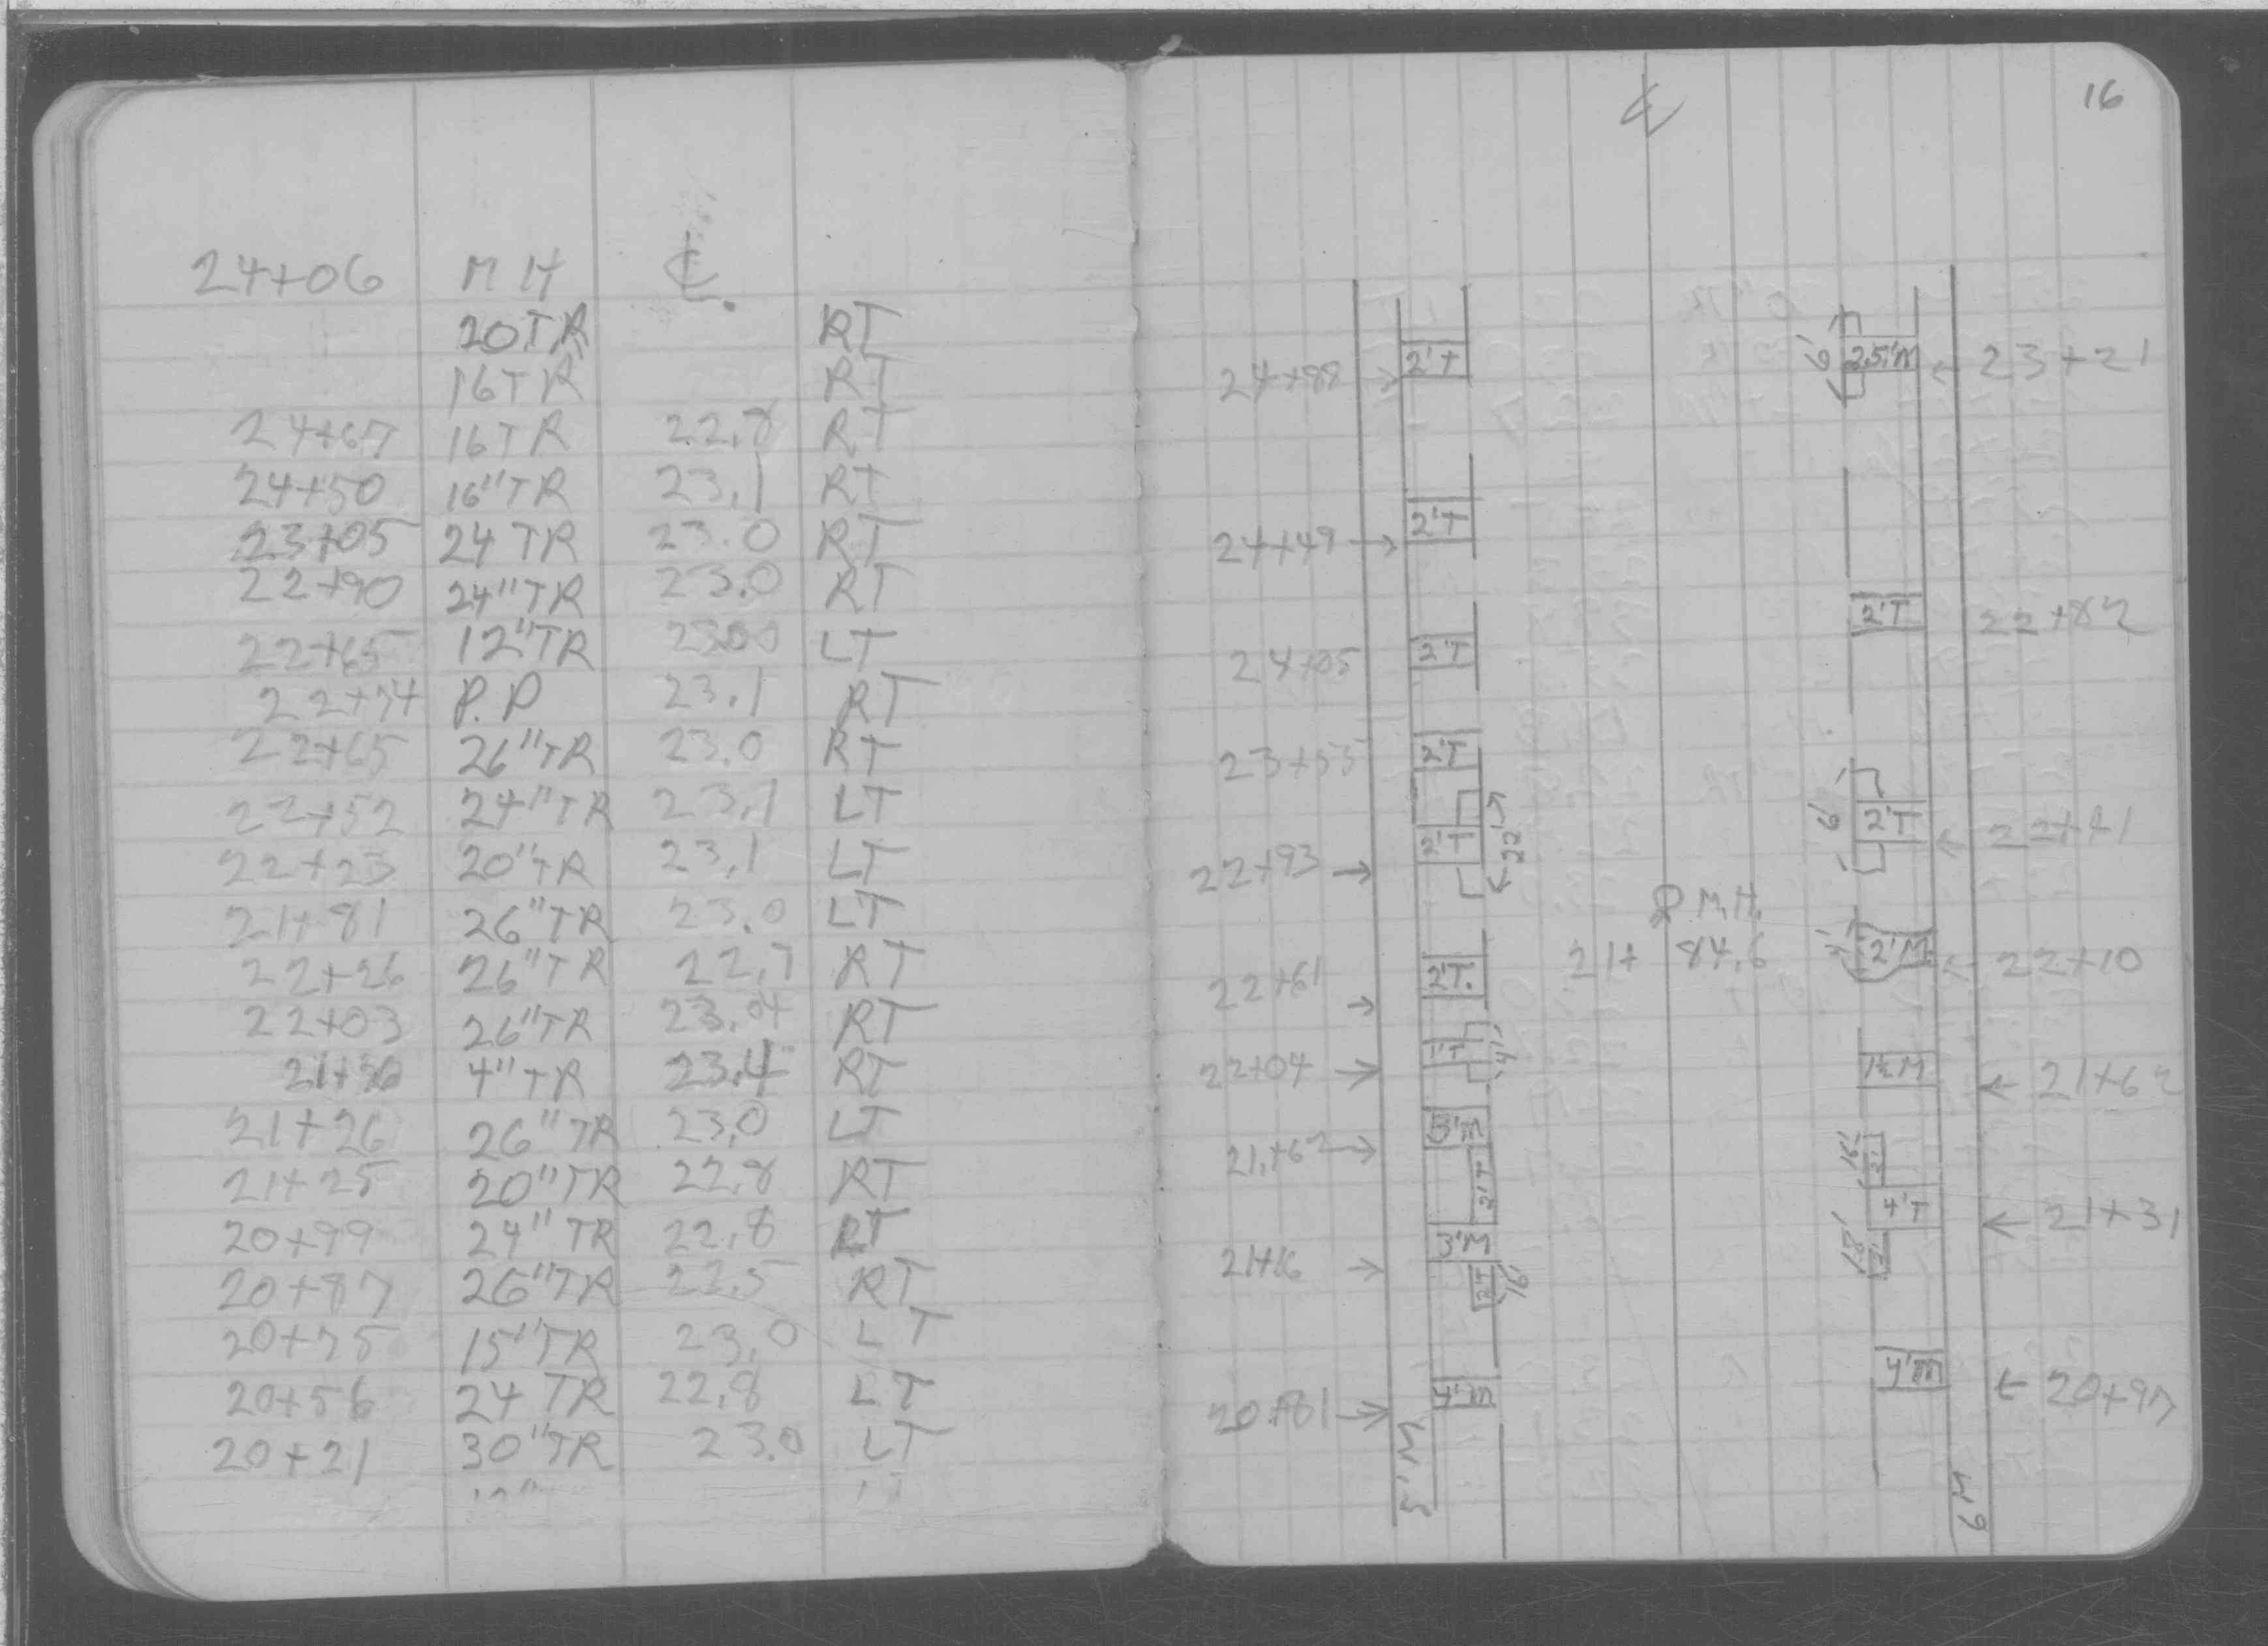 24+06 MH ℄.
20 TR RT
16 TR RT
24+67 16 TR 22.8 RT
24+50 16" TR 23.1 RT
23+05 24 TR 23.0 RT
22+90 24" TR 23.0 RT
22+65 12" TR 23.00 LT
22+74 P.P 23.1 RT
22+65 26" TR 23.0 RT
22+52 24" TR 23.1 LT
22+23 20" TR 23.1 LT
21+81 26" TR 23.0 LT
22+26 26" TR 22.7 RT
22+03 26" TR 23.04 RT
4" TR 23.4 RT
21+26 26" TR 23.0 LT
21+25 20" TR 22.8 RT
20+99 24" TR 22.8 RT
20+87 26" TR 22.5 RT
20+75 15" TR 23.0 LT
20+56 24 TR 22.8 LT
20+21 30" TR 23.0 LT
16
℄
24+88 → 2'T
6' 2.5'M ← 23+21
24+49 → 2'T
2'T 22+82
24+05 2'T
23+55 2'T
6' 2'T ← 22+41
22+93 → 2'T 22'
M.H.
21+84.6
4' 2'M ← 22+10
22+61 → 2'T.
22+04 → 1'T 4'
1½M ← 21+62
21+62 → 5'M
2'T
16' 2'
4'T ← 21+31
18' 2'
21+16 → 3'M
2'T 16'
4'M ← 20+97
20+81 → 4'M
5'M
6M